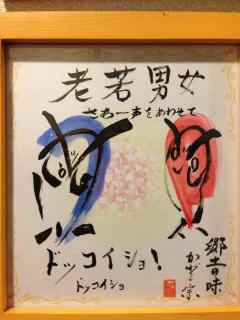 老若男女
さあ一声をあわせて
ドッコイショ！
ドッコイショ
郷土の味
かど宗